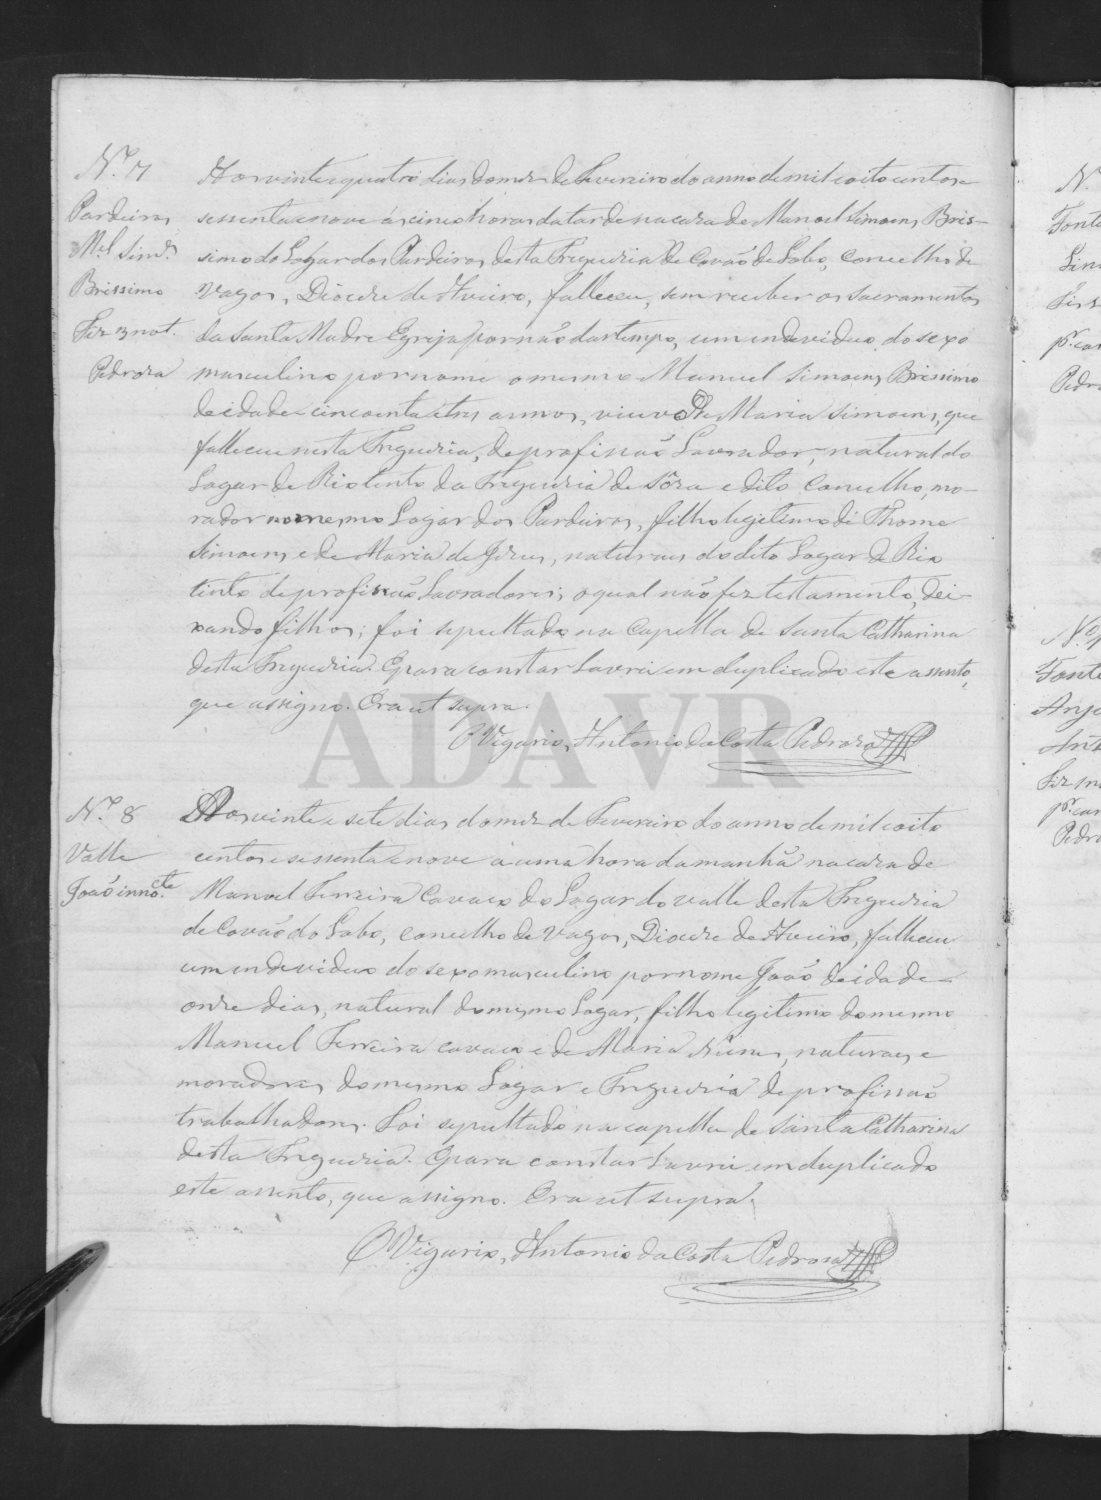 N.º 7
Pardeiros
M.el Sim.s
Brissimo
Fez not.
Pedroza
Aos vinte e quatro dias do mez de Fevereiro do anno de mil e oito centos e
sessenta e nove ás cinco horas da tarde na caza de Manoel Simoens Bris-
simo do Logar dos Pardeiros desta Freguezia de Covão do Lobo, concelho de
Vagos, Diocese de Aveiro, falleceu, sem receber os sacramentos
da Santa Madre Egreja por não dar tempo, um individuo do sexo
masculino por nome o mesmo Manuel Simoens Brissimo
de idade cincoenta e tres annos, viuvo de Maria Simoens, que
falleceu nesta Freguezia, de profissão Lavrador, natural do
Logar de Rio tinto da Freguezia de Sôza e dito Concelho, mo-
rador no mesmo Logar dos Pardeiros, filho legitimo de Thome
Simoens e de Maria de Jezus, naturaes do dito Logar de Rio
tinto de profissão Lavradores; o qual não fez testamento, dei-
xando filhos; foi sepultado na Capella de Santa Catharina
desta Freguezia. E para constar Lavrei em duplicado este assento,
que assigno. Era ut supra.
O Vigario, Antonio da Costa Pedroza
N.º 8
Valle
João inno.cte
Aos vinte e sete dias do mez de Fevereiro do anno de mil e oito
centos e sessenta e nove á uma hora da manhã na caza de
Manoel Ferreira Cavaco do Logar do Valle desta Freguezia
de Covão do Lobo, concelho de Vagos, Diocese de Aveiro, falleceu
um individuo do sexo masculino por nome João de idade
onze dias, natural do mesmo Logar, filho legitimo do mesmo
Manuel Ferreira Cavaco e de Maria Nunes, naturaes e
moradores do mesmo Logar e Freguezia de profissão
trabalhadores. Foi sepultado na capella de Santa Catharina
desta Freguezia. E para constar Lavrei em duplicado
este assento, que assigno. Era ut supra.
O Vigario, Antonio da Costa Pedroza
ADAVR